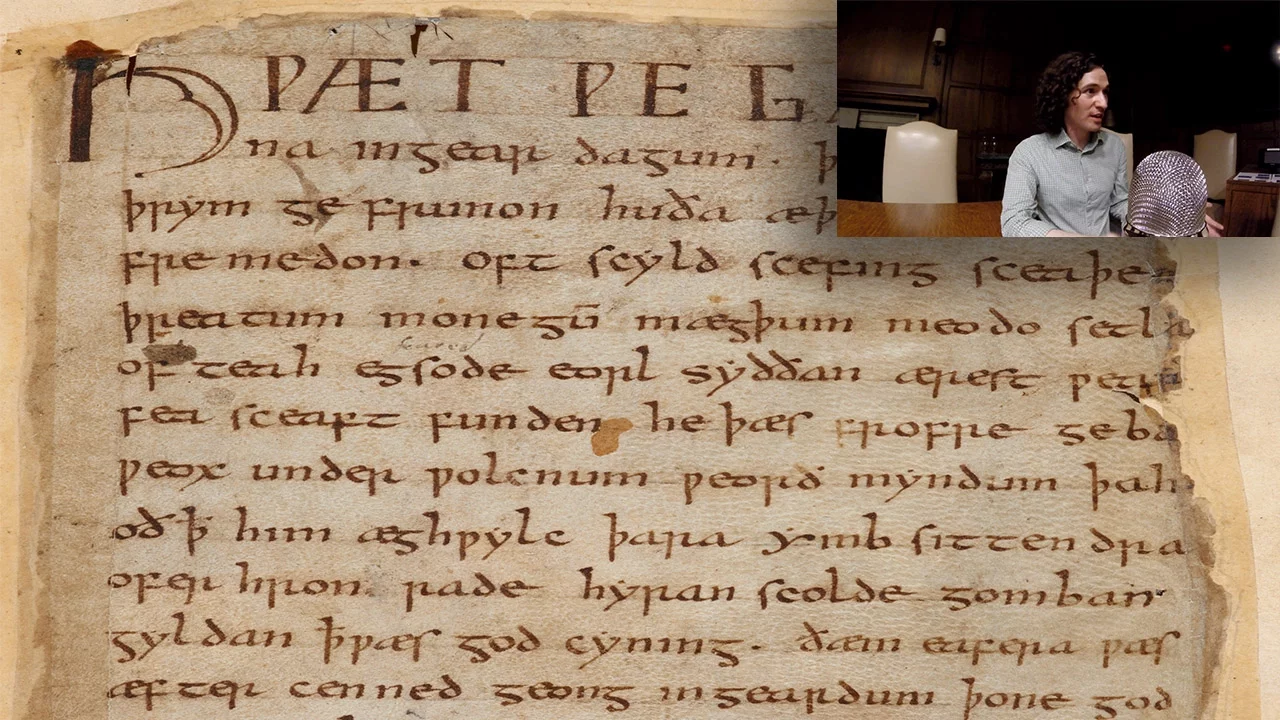 HǷÆT ǷE G
na ingear dagum.
þrym ge frunon huða
fremedon. oft scyld scefing sceaþe
þreatum monegū mægþum meodo setla
of teah egsode eorl syððan ærest
fea sceaft funden he þæs frofre geba
ƿeox under ƿolcnum ƿeorð myndum þah
oð ꝥ him æghƿylc þara ymb sittendra
ofer hron rade hyran scolde gomban
gyldan ꝥ ƿæs god cyning. ðæm eafera ƿæs
æfter cenned geong ingeardum þone god